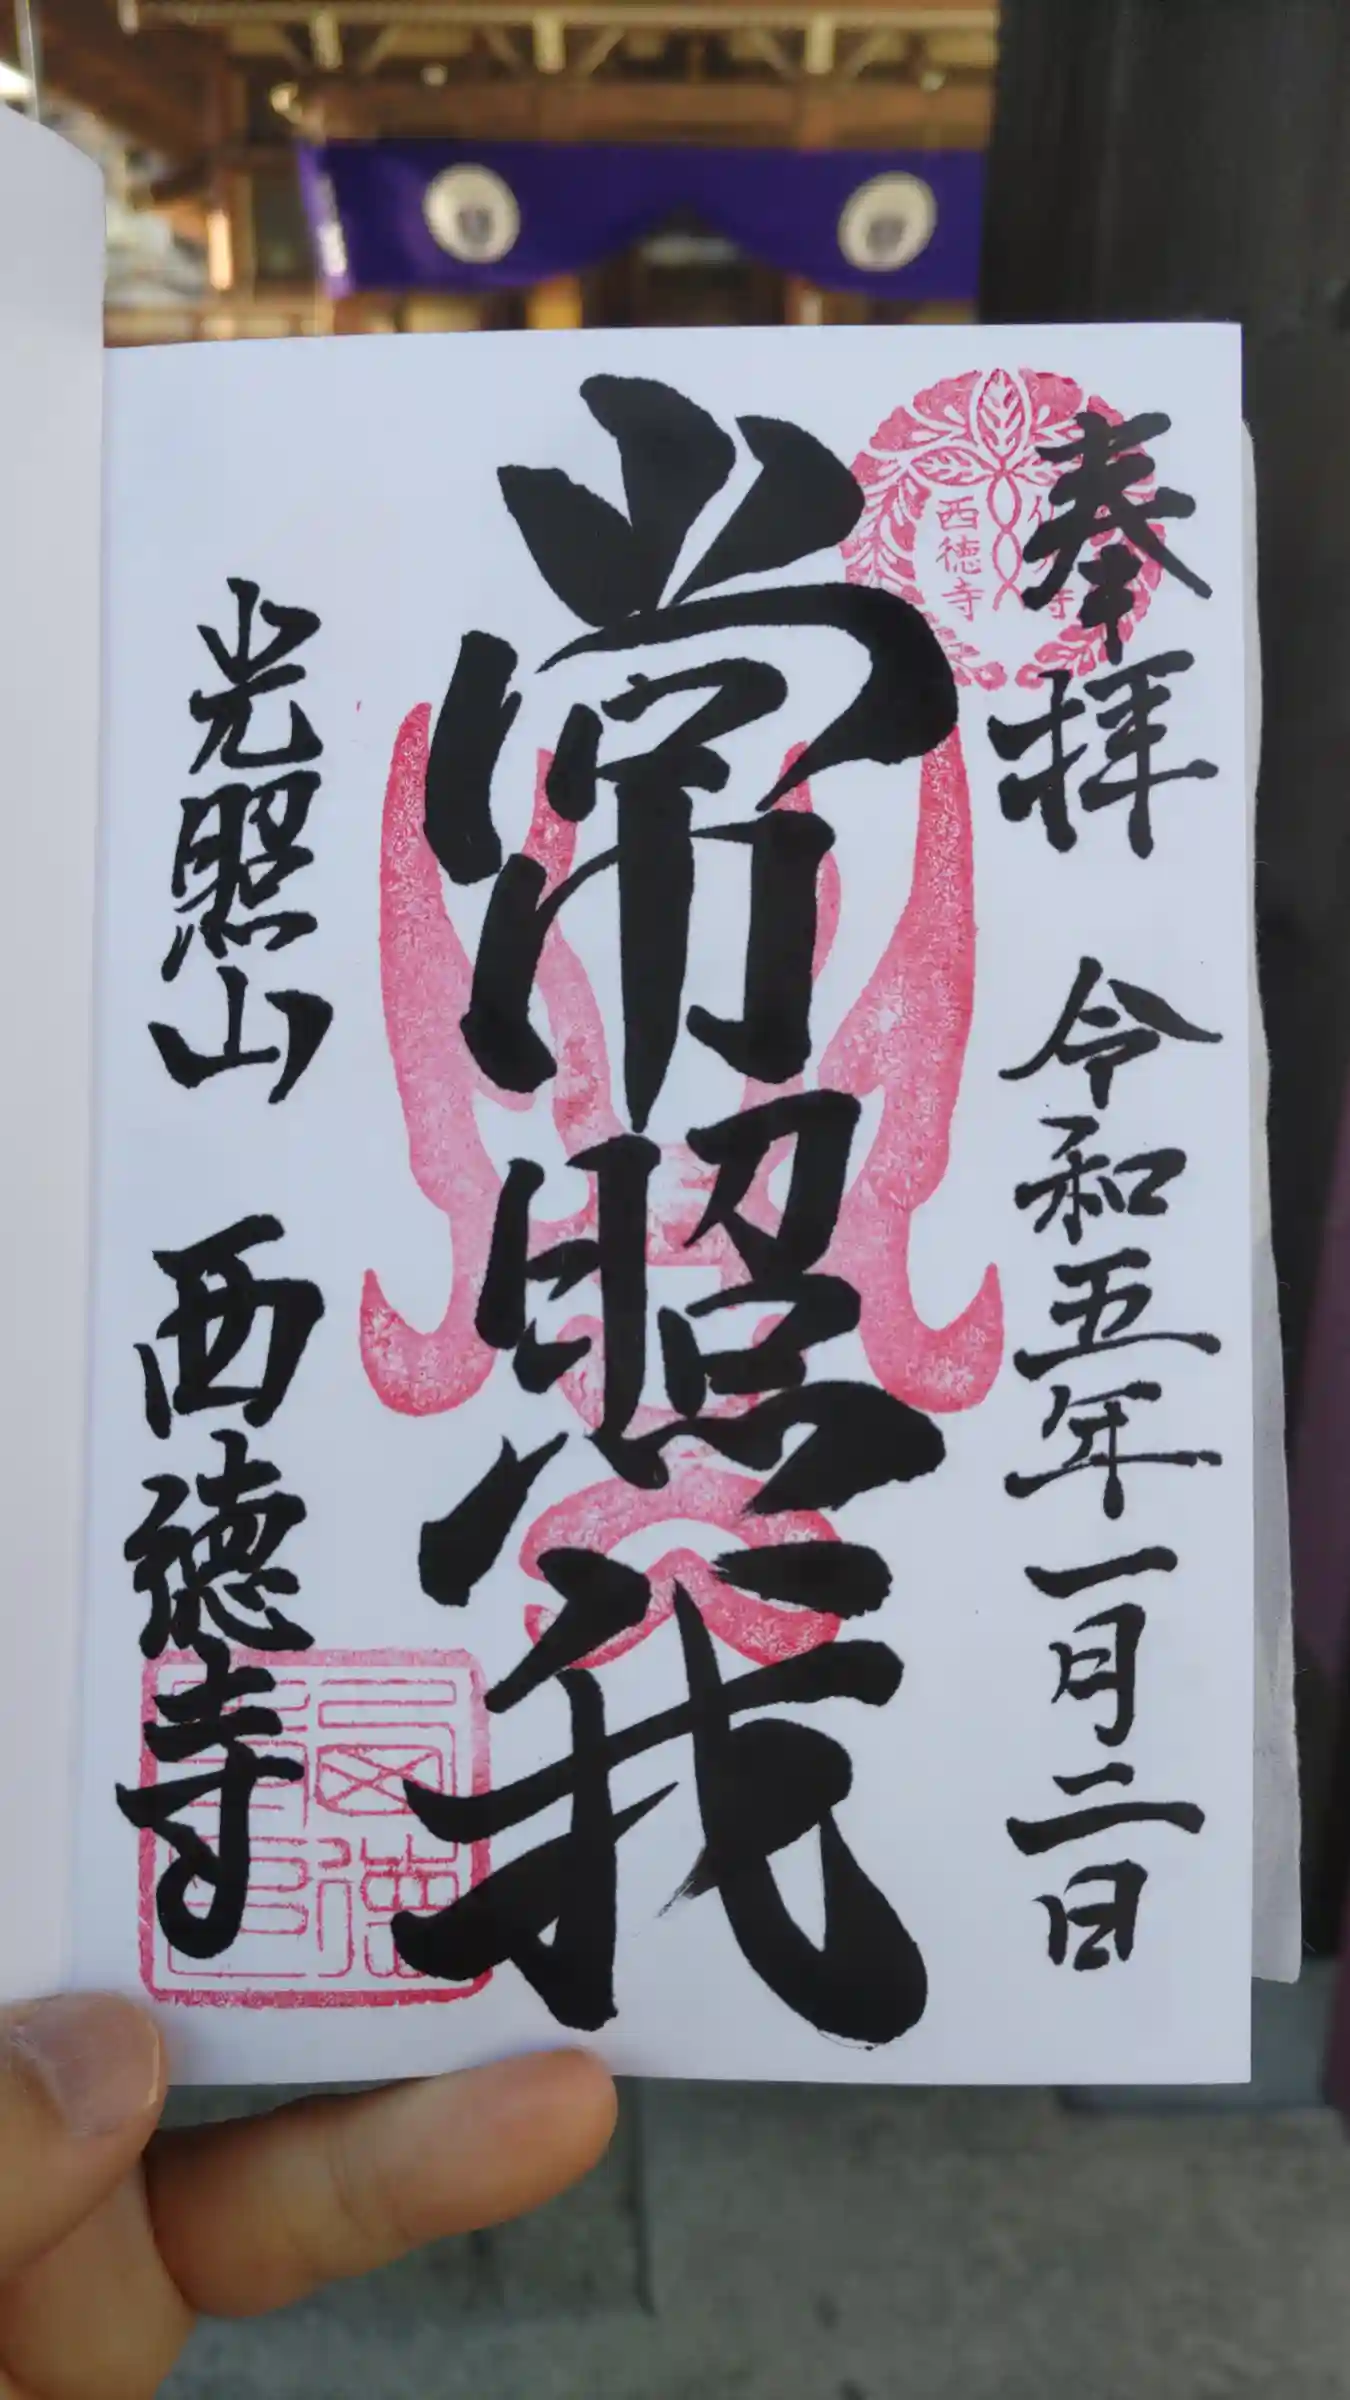 奉拝 令和五年一月二日
常照我
光照山 西徳寺
西徳寺